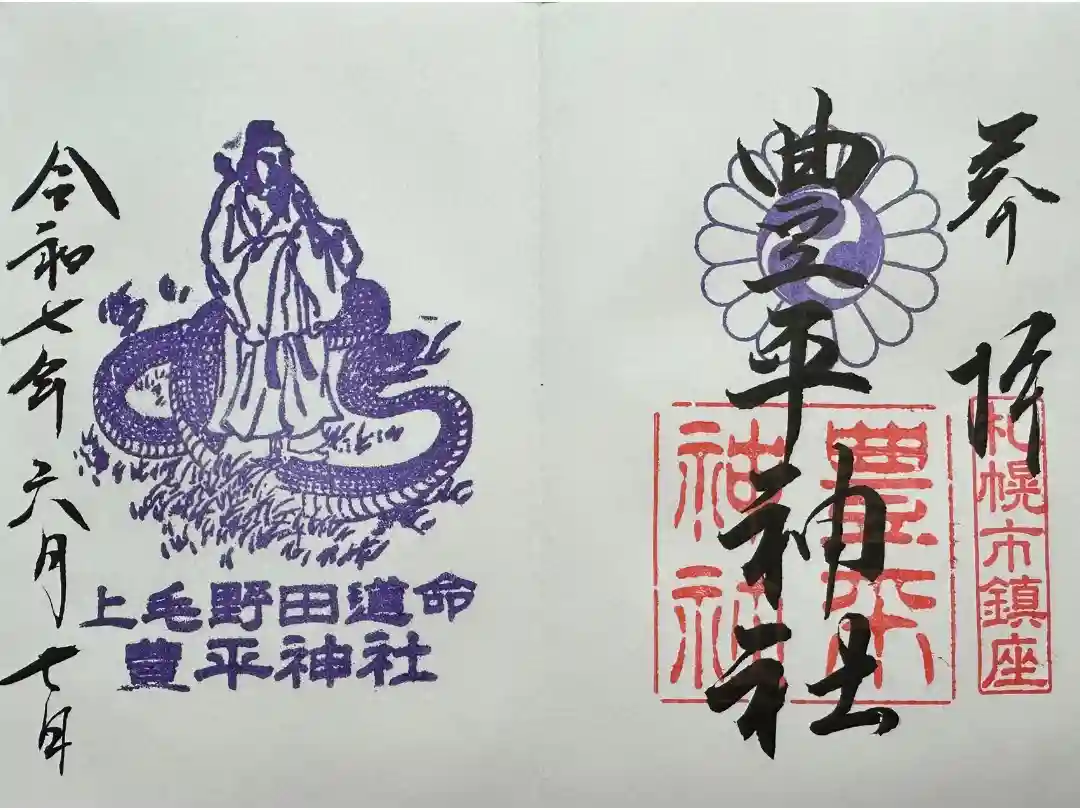 奉拝
札幌市鎮座
豊平神社
豊平
神社
上毛野田道命
豊平神社
令和七年六月七日